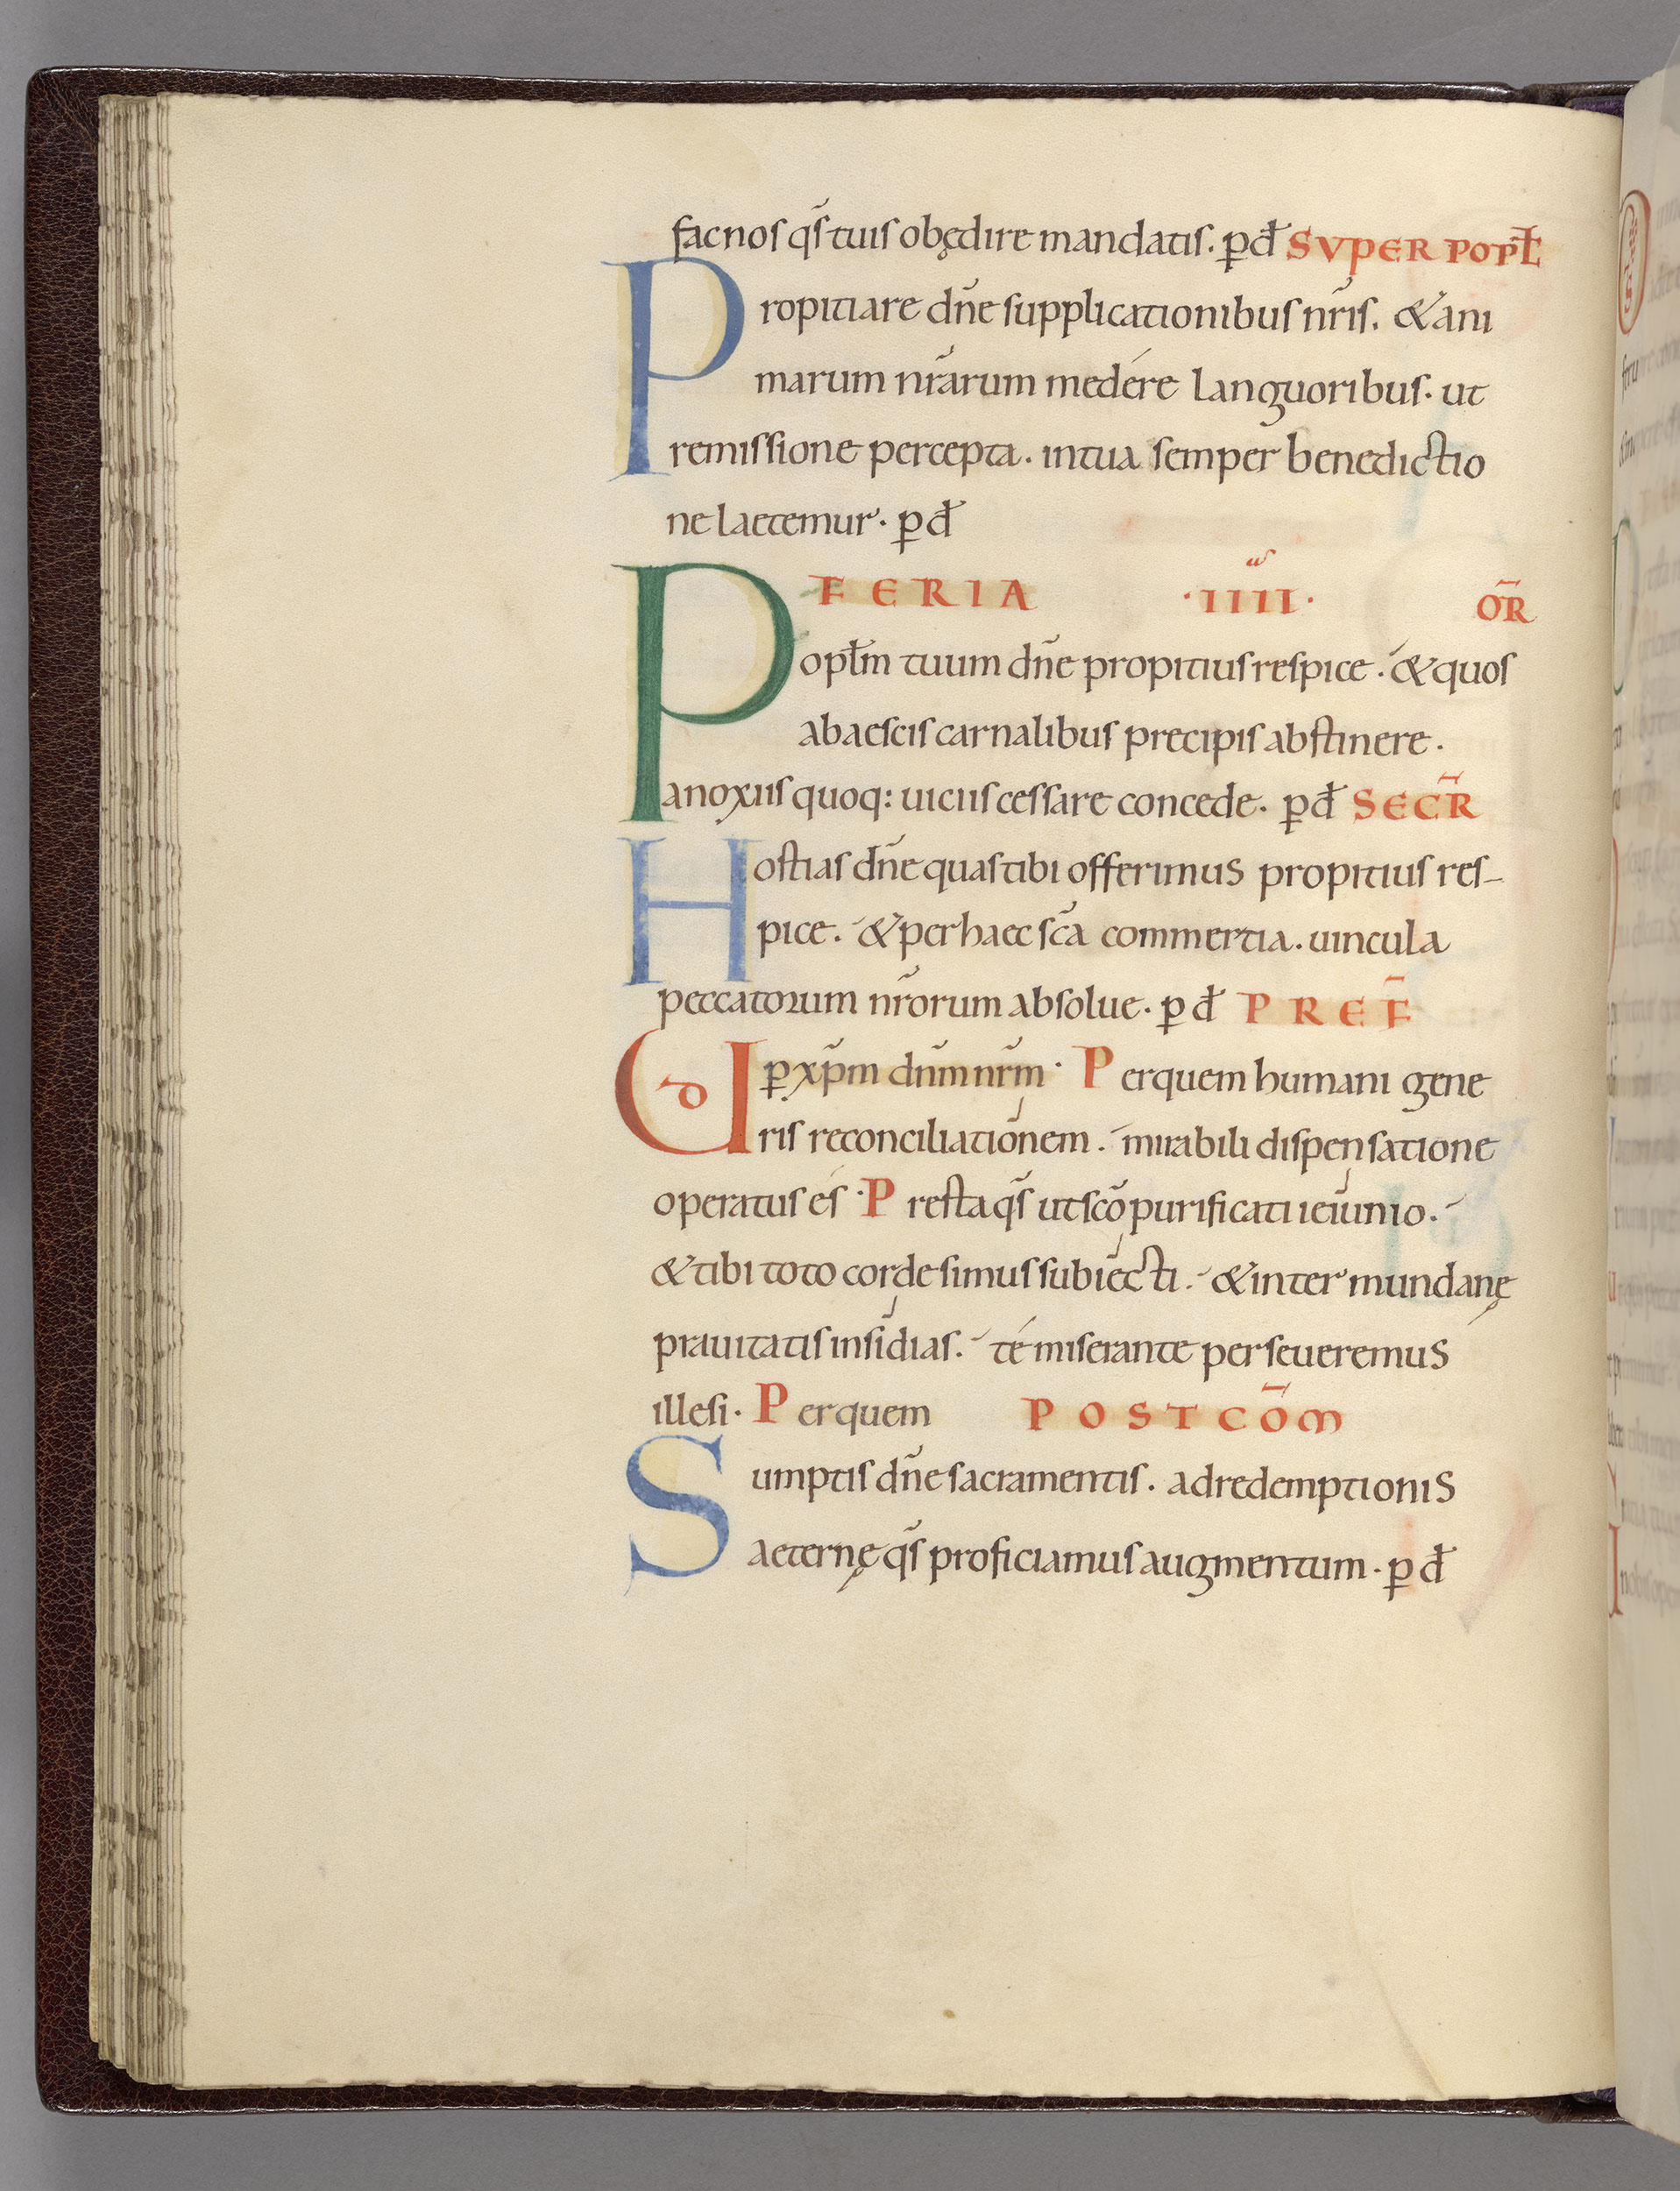 fac nos qs̄ tuis obędire mandatis. p̄ d̄ SVPER POPL̄
Propitiare dn̄e supplicationibus nr̄is. & ani
marum nr̄arum medére languoribus. ut
remissione percepta. in tua semper benedictio
ne laetemur. p̄ d̄
FERIA .IIII. us OR̄
Popl̄m tuum dn̄e propitius respice. & quos
ab aescis carnalibus precipis abstinere.
a noxiis quoq: uiciis cessare concede. p̄ d̄ SECR̄
Hostias dn̄e quas tibi offerimus propitius res-
pice. & per haec sc̄a commertia. uincula
peccatorum nr̄orum absolue. p̄ d̄ PREF̄
UD p̄ xp̄m dn̄m nr̄m. Per quem humani gene
ris reconciliationem. mirabili dispensatione
operatus és. Presta qs̄ ut sc̄o purificati ieiunio.
& tibi toto corde simus subiecti. & inter mundanę
prauitatis insidias. té miserante perseueremus
illesi. Per quem POSTCŌM
Sumptis dn̄e sacramentis. ad redemptionis
aeternę qs̄ proficiamus augmentum. p̄ d̄